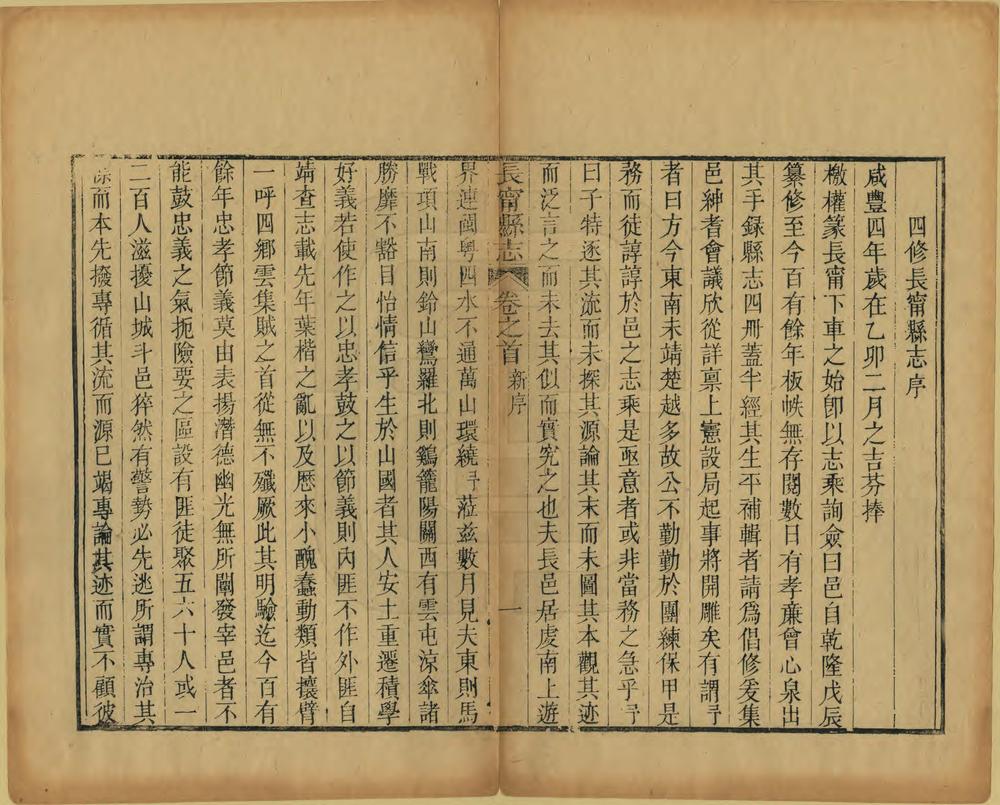 四修長甯縣志序
咸豐四年歲在乙卯二月之吉芬捧
檄權篆長甯下車之始卽以志乘詢僉曰邑自乾隆戊辰
纂修至今百有餘年板帙無存閱數日有孝亷曾心泉出
其手錄縣志四冊蓋半經其生平補輯者請爲倡修爰集
邑紳者會議欣從詳禀上憲設局起事將開雕矣有謂予
者曰方今東南未靖楚越多故公不勤勤於團練保甲是
務而徒諄諄於邑之志乘是亟意者或非當務之急乎予
曰子特逐其流而未探其源論其末而未圖其本觀其迹
而泛言之而未去其似而實究之也夫長邑居虔南上遊
長甯縣志 卷之首 新序 一
界連閩粤四水不通萬山環繞予蒞兹數月見夫東則馬
戰項山南則鈴山鸞羅北則鷄籠陽關西有雲屯涼傘諸
勝靡不豁目怡情信乎生於山國者其人安土重遷積學
好義若使作之以忠孝鼓之以節義則內匪不作外匪自
靖查志載先年葉楷之亂以及歷來小醜蠢動類皆攘臂
一呼四鄉雲集賊之首從無不殲厥此其明驗迄今百有
餘年忠孝節義莫由表揚潛德幽光無所闡發宰邑者不
能鼓忠義之氣扼險要之區設有匪徒聚五六十人或一
二百人滋擾山城斗邑猝然有警勢必先逃所謂專治其
標而本先撥專循其流而源已竭專論其迹而實不顧彼